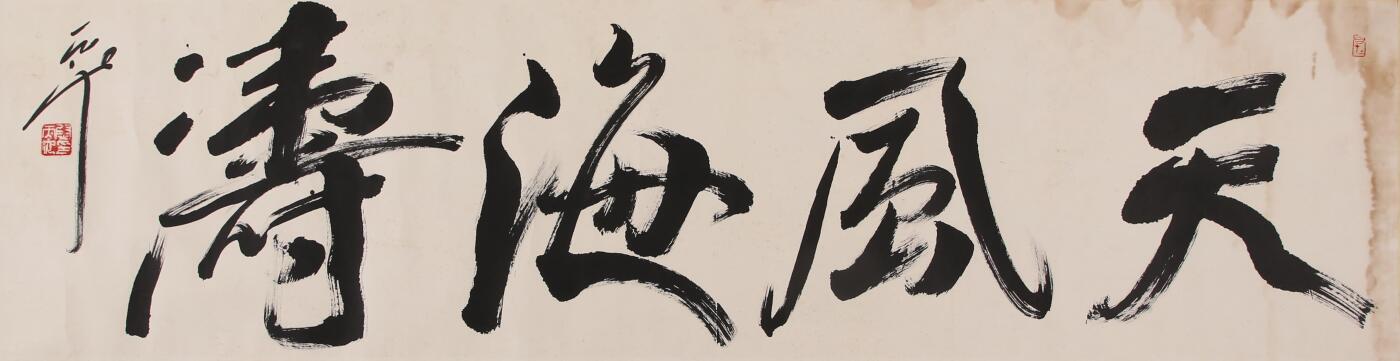 天風海濤